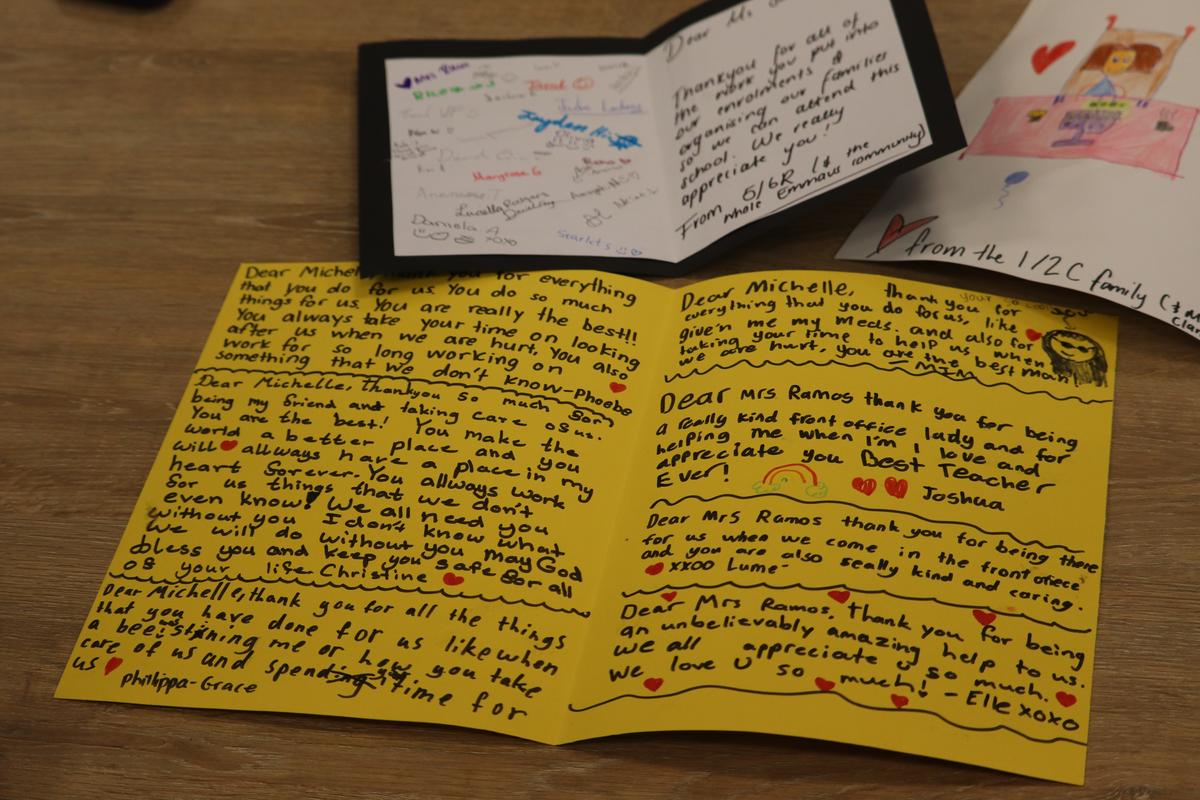 Mrs Ram
Jarod
Jayden Hi
Margrose G
Lucella Rodgers
Daniela A
xoxo
Scarlet S
Dear Ms
Thankyou for all of
the work you put into
our enrolments &
organising our families
so we can attend this
school. We really
appreciate you!
From 5/6R (& the
whole Emmaus community)
from the 1/2 C family (+ M
Cla
Dear Michel you for everything
that you do for us. You do so much
things for us. You are really the best!!
You always take your time on looking
after us when we are hurt, You also
work for so long working on
something that we don't know-Phoebe
Dear Michelle, Thankyou so much for
being my friend and taking care of us.
You are the best! You make the
world a better place and you
will allways have a place in my
heart forever. You allways work
for us things that we don't
even know! We all need you
without you I don't know what
we will do without you may God
bless you and keep you safe for all
of your life Christine
Dear Michelle, thank you for all the things
that you have done for us like when
a bee was stining me or how you take
care of us and spending time for
us philippa-Grace
Dear Michelle, thank you for
everything that you do for us, like
give'n me my Meds. and also for
taking your time to help us when
we are hurt, you are the best man!
- MIM
Dear Mrs Ramos thank you for being
a really kind front office lady and for
helping me when I'm I love and
appreciate you Best Teacher
Ever!
Joshua
Dear Mrs Ramos thank you for being there
for us when we come in the front ofiece
and you are also really kind and caring.
xxoo Lume-
Dear Mrs Ramos, Thank you for being
an unbelievably amazing help to us.
we all appreciate u so much.
we love u so much! - Elle xoxo